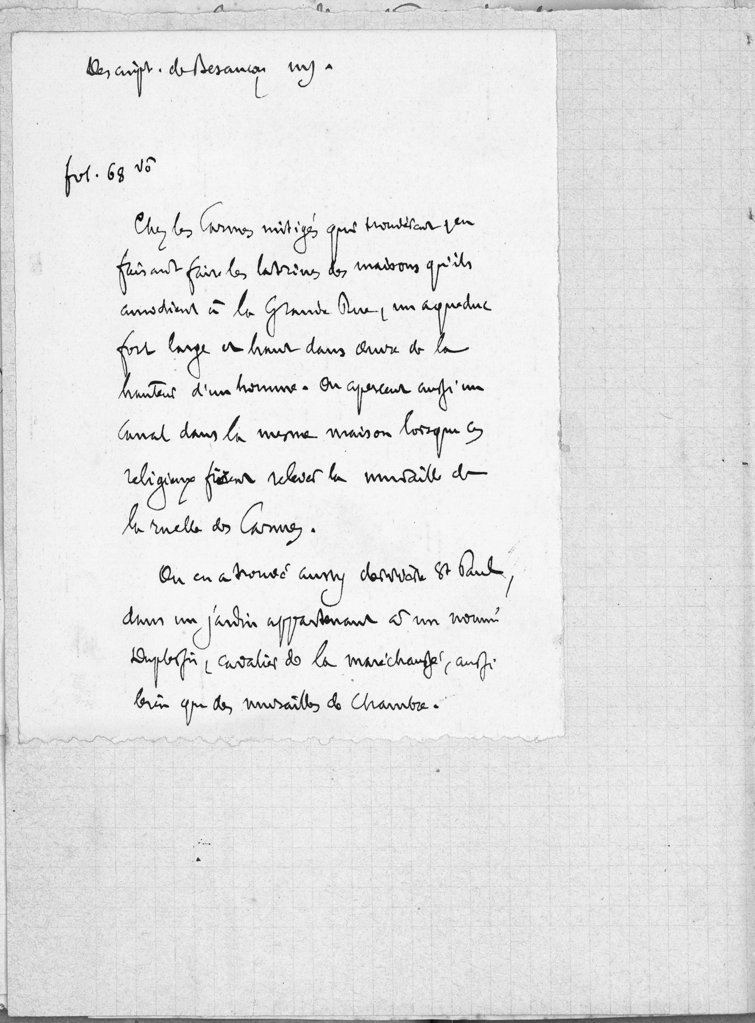 Descript. de Besançon ms.
fol. 68 vo
Chez les Carmes mitigés qui trouvèrent, en
faisant faire les latrines des maisons qu'ils
amodient à la Grande Rue, un aqueduc
fort large et haut dans œuvre de la
hauteur d'un homme. On aperceut aussi un
canal dans la mesme maison lorsque ces
religieux firent relever la muraille de
la ruelle des Carmes.
On en a trouvé aussy derrière St Paul,
dans un jardin appartenant à un nommé
cavalier de la maréchaussée, aussi
bien que des murailles de Chambre.